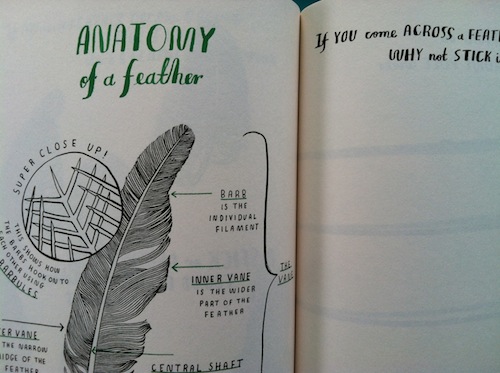 ANATOMY
of a feather
SUPER CLOSE UP!
THIS SHOWS HOW
THE BARBS HOOK ON TO
EACH OTHER USING
BARBULES
BARB
IS THE
INDIVIDUAL
FILAMENT
INNER VANE
IS THE WIDER
PART OF THE
FEATHER
THE
VANE
ER VANE
THE NARROW
IDGE OF THE
FEATHER
CENTRAL SHAFT
If YOU come ACROSS a FEAT
WHY not STICK i